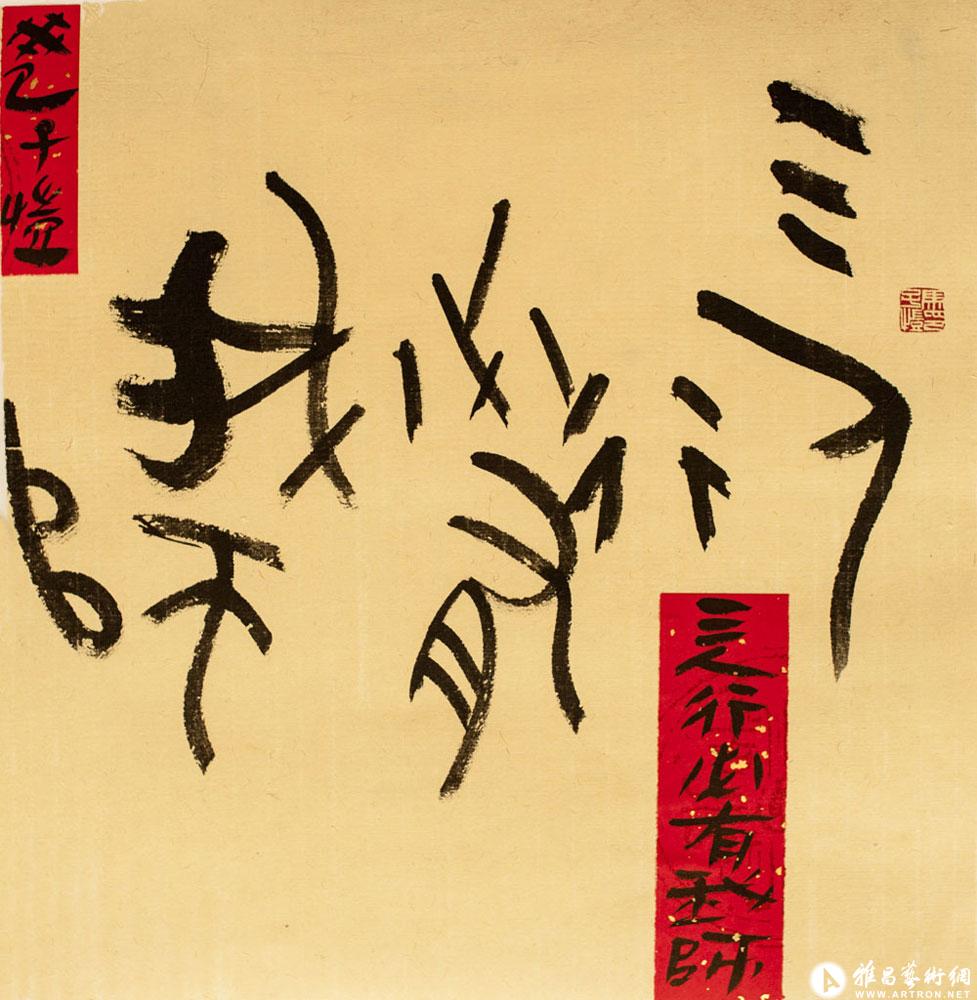 三人行
必有
我師
三人行必有我師
雅昌藝術網
WWW.ARTRON.NET